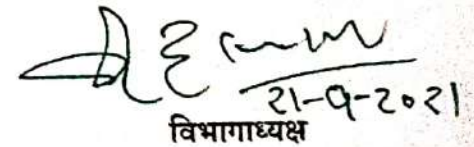 21-9-2021
विभागाध्यक्ष